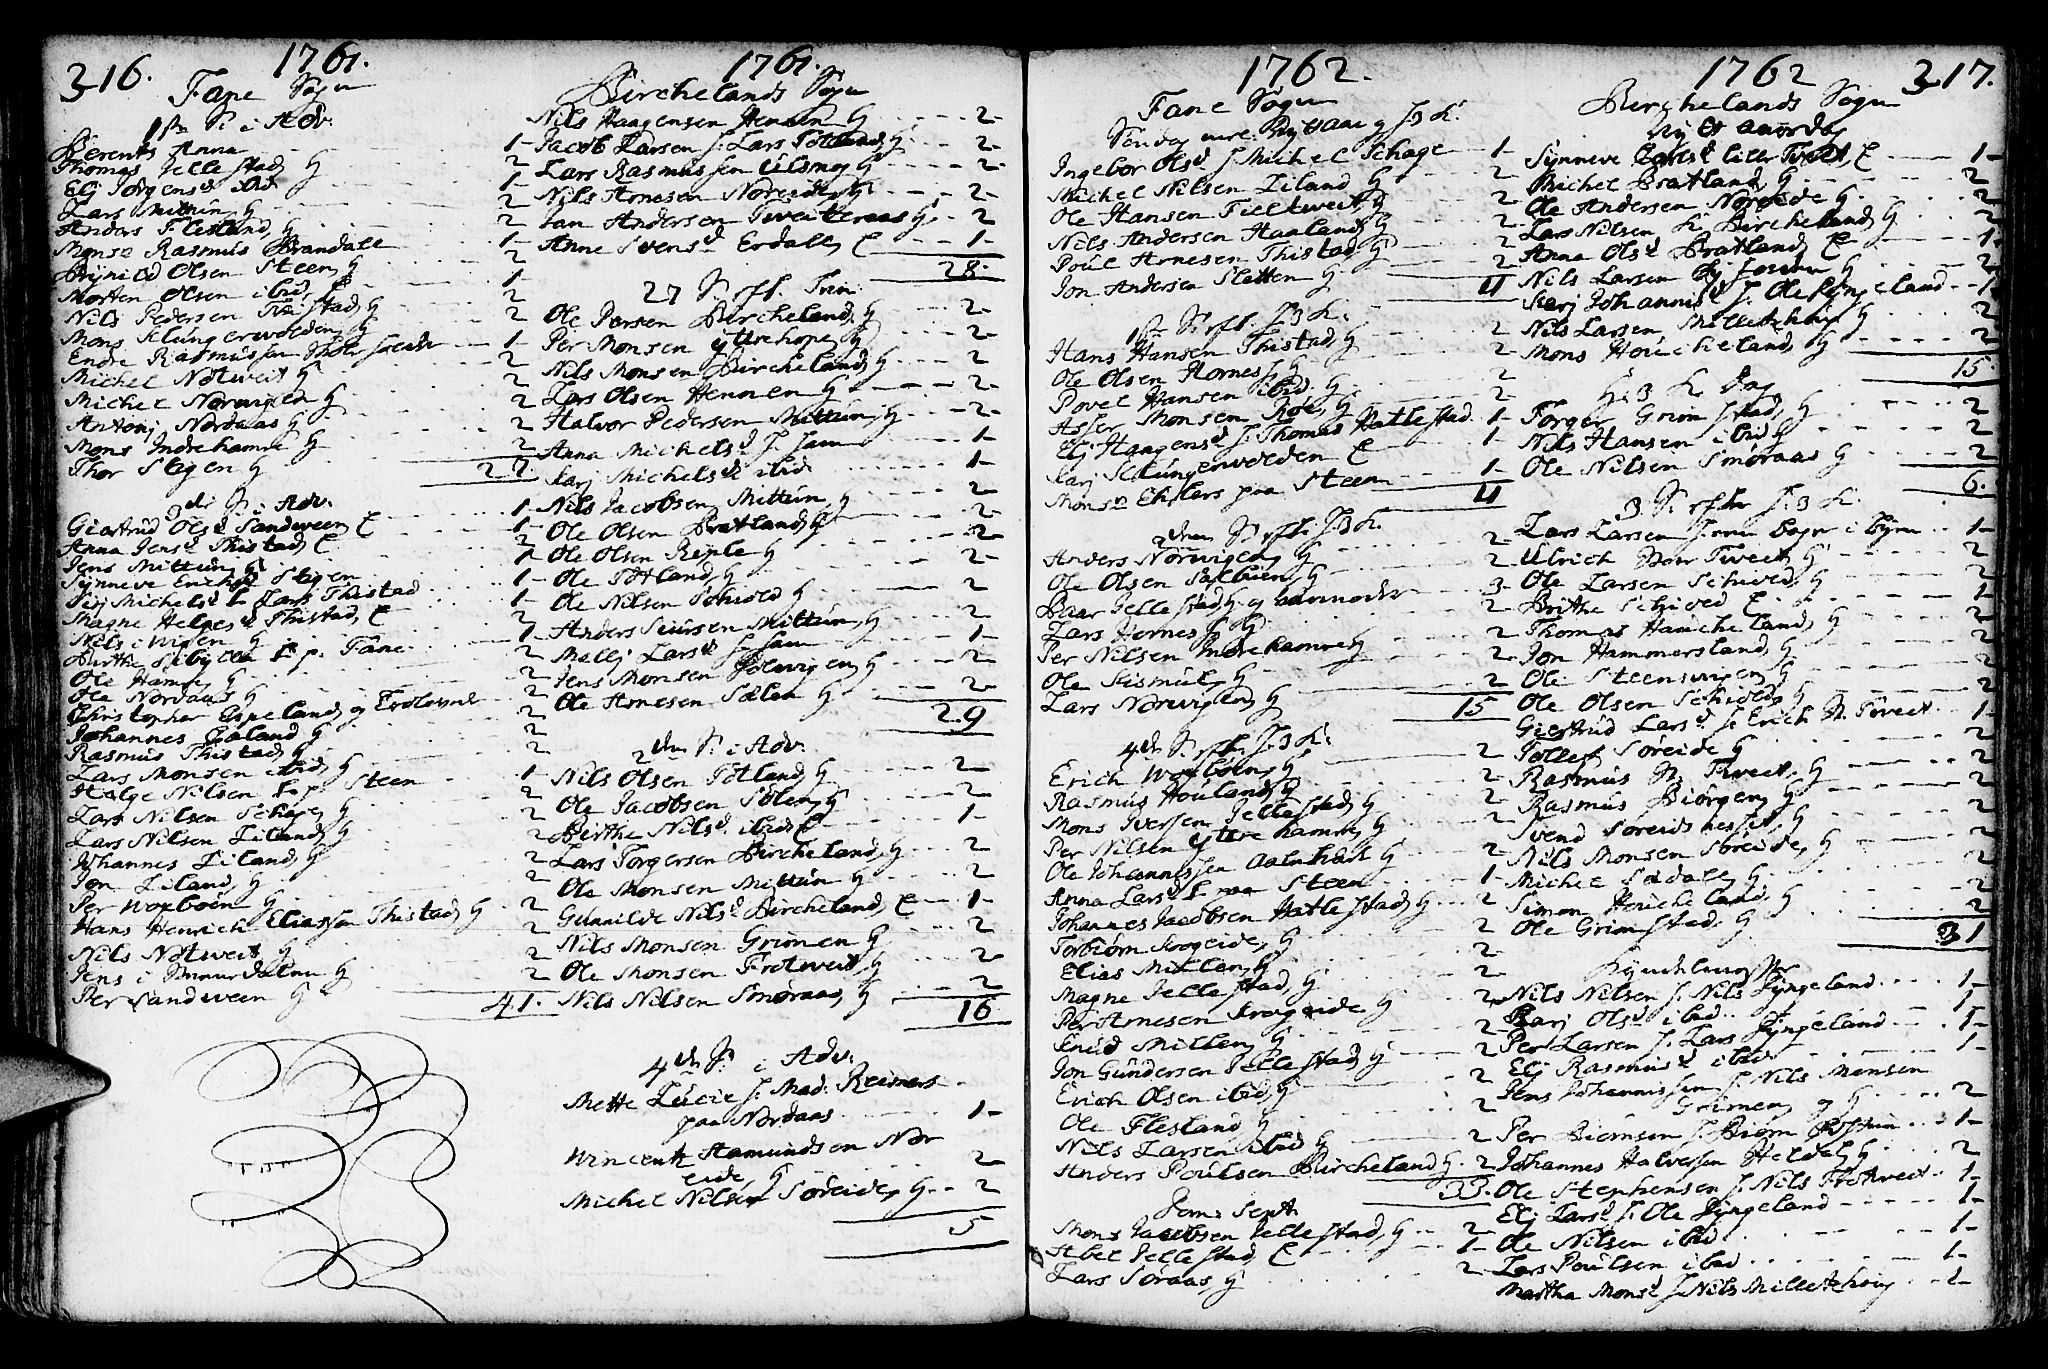 316. 1761.
Fane Sogn
1ste S. i Adv.
Berents Anna 1-
Thomas Jellestad, G 2
Elj Jørgensd ibid 1-
Lars Mittun G 2
Anders Flesland, G 2
Monse Rasmus Brandalle 1-
Brynild Olsen Steen, G 2
Morten Olsen ibid, E 1
Nils Pedersen Nestad, G 2
Mons Klungervolden, G 2
Endre Rasmussen 1-
Michel Nøtweit G 2
Michel Norwigen G 2
Antonj Nordaas G 2
Mons Indrehamre G 2
Thor Stegen G 2
27
3die S. i Adv.
Giertrud Olsd Sandween, E 1-
Anna Jensd Thistad, E 1
Jens Mittun, G 2
Synneve Erichsd Stegen 1
Siri Michelsd L Lars Thistad 1-
Magne Helgesd Thistad, E 1-
Nils i Wigen G 2
Birthe Sibylle L p. Fane 1-
Ole Hamre G 2
Ole Nordaas G 2
Christopher Espeland, og 2
Johannes Øeland G 2
Rasmus Thistad, G 2
Lars Monsen ibid, G 2
Helge Nilsen L p. Steen 1-
Lars Nilsen Schage, G 2
Lars Nilsen Liland, G 2
Johannes Liland, G 2
Jon Liland, G 2
Per Woxboen G 2
Hans Henrich Eliassen Thistad, G 2
Nils Nøtweit G 2
Jens i Smaardalen G 2
Per Sandween G 2
41.
1761.
Birchelands Sogn
Nils Haagensen Hennen G 2-
Jacob Larsen S. Lars Totland, G 2-
Lars Rasmussen Ulsmog G 2-
Nils Arnesen Noreide, G 2-
Jan Andersen Tweiteraas G 2
Anne Svensd Erdalle, E 1-
28.
27 S. eft. Trin.
Ole Persen Bircheland, G 2-
Per Monsen ytterhope, G 2
Nils Monsen Bircheland, G 2-
Lars Olsen Hennen G 2-
Halvor Pedersen Mittun, G 2-
Anna Michelsd S. Sam 1-
Karj Michelsd ibid 1-
Nils Jacobsen Mittun, G 2-
Ole Olsen Bratland, G 2-
Ole Olsen Reple G 2-
Ole Totland, G 2-
Ole Nilsen Schiold G 2
Anders Siursen Mittun, G 2
Mallj Larsd S. Sam 1-
Jens Monsen Solwigen, G 2-
Ole Arnesen Sælen G 2-
29
2den S. i Adv.
Nils Olsen Totland, G 2-
Ole Jacobsen Sælen, G 2
Birthe Nilsd ibid, E 1-
Lars Torgersen Bircheland, G 2
Ole Monsen Mittun G 2
Gunnilde Nilsd Bircheland, E 1-
Nils Monsen Grimen G 2
Ole Monsen Frotweit, G 2
Nils Nilsen Smøraas, G 2
16
4de S. i Adv.
Mette Lucie S. Mad. Reimers
paa Nordaas 1-
Wincentz Hamundsen Nor
eide G 2
Michel Nilsen Søreide, G 2
5
1762.
Fane Sogn
Søndag mell. Nytaar og H3K.
Ingebor Olsd S. Michel Schage 1-
Michel Nilsen Liland G 2
Ole Hansen Tieltweit, G 2
Nils Andersen Haaland, G 2
Poul Arnesen Thistad, G 2
Jon Andersen Sletten G 2
11
1ste S. eft. H3K.
Hans Hansen Thistad, G 2
Ole Olsen Hornes, G 2
Povel Hansen ibid. G 2
Asser Monsen Røe, G 2
Elj Haagensd S. Thomas Hatlestad 1-
Karj Klungerwolden E 1
Monsr Ehlers paa Steen 1-
11
2den S. eft. H3K.
Anders Norwigen, G 2
Ole Olsen Salbuen, G 2
Baar Jellestad, G. og Baarmoder 3.
Lars Hornes, G 2
Per Nilsen Indrehamre, G 2
Ole Sismul, G 2
Lars Norwigen, G 2
15
4de S. eft. H3K.
Erich Woxboen, G 2
Rasmus Houland, G 2
Mons Iversen Jellestad, G 2
Per Nilsen ytterhamre, G 2
Ole Johannessen G 2
Anna Larsd L paa Steen 1-
Johannes Jacobsen Hatlestad, G 2
Torbiørn Skogeide, G 2
Elias Millen, G 2
Magne Jellestad, G 2
Per Arnesen Skogeide G 2
Knud Millen, G 2
Jon Gundersen Jellestad, G 2
Erich Olsen ibid, G 2
Ole Flesland G 2
Nils Larsen ibid G 2
Anders Poulsen Bircheland G. 2
33.
Dom. Sept.
Mons Jacobsen Jellestad, G 2
Abel Jellestad, E 1-
Lars Søraas, G 2
1762 317.
Birchelands Sogn
Nyt aarsdag
Synneve Larsd Lille Tweit, E 1-
Michel Bratland, G 2
Ole Andersen Noreide G 2
Lars Nilsen L. Bircheland, G 2
Anna Olsd Bratland, E 1-
Nils Larsen G 2
Karj Johannisd S. Ole Lyngeland 1-
Nils Larsen Milletzhoug G 2
Mons Houcheland, G 2
15
H. 3 K. Dag
Torger Grimstad, G 2
Nils Hansen ibid, G 2
Ole Nilsen Smøraas G 2
6.
3 S. efter H3K.
Lars Larsen 1-
Ulrich Tweit, G 2
Ole Larsen Schived, G 2
Brithe Schived E 1-
Thomas Haucheland, G 2
Jon Hammersland, G 2
Ole Steenswigen, G 2
Ole Olsen Schived, G 2
Giertrud Larsd S. Erich N. Tweit 1-
Tollef Søreide G 2
Rasmus N. Tweit, G 2
Rasmus Biørgen, G 2
Svend Søreidsnesset, G 2
Nils Monsen Søreide, G 2
Michel Sædale, G 2
Simon Houcheland, G 2
Ole Grimstad, G 2
31
Kyndelmisse
Nils Nilsen S. Nils Lyngeland 1-
Karj Olsd ibid 1-
Per Larsen S. Lars Lyngeland 1-
Elj Rasmusd ibid 1-
Jens Johannissen S. Nils Monsen
Grimen, og G 2
Per Biørnsen S. Biørn 1-
Johannes Halversen Heldal, G 2
Ole Stephensen S. Nils Frotweit 1-
Elj Larsd S. Ole Lyngeland 1-
Ole Nilsen ibid 1-
Lars Poulsen ibid 1-
Martha Monsd S. Nils Milletzhoug 1-